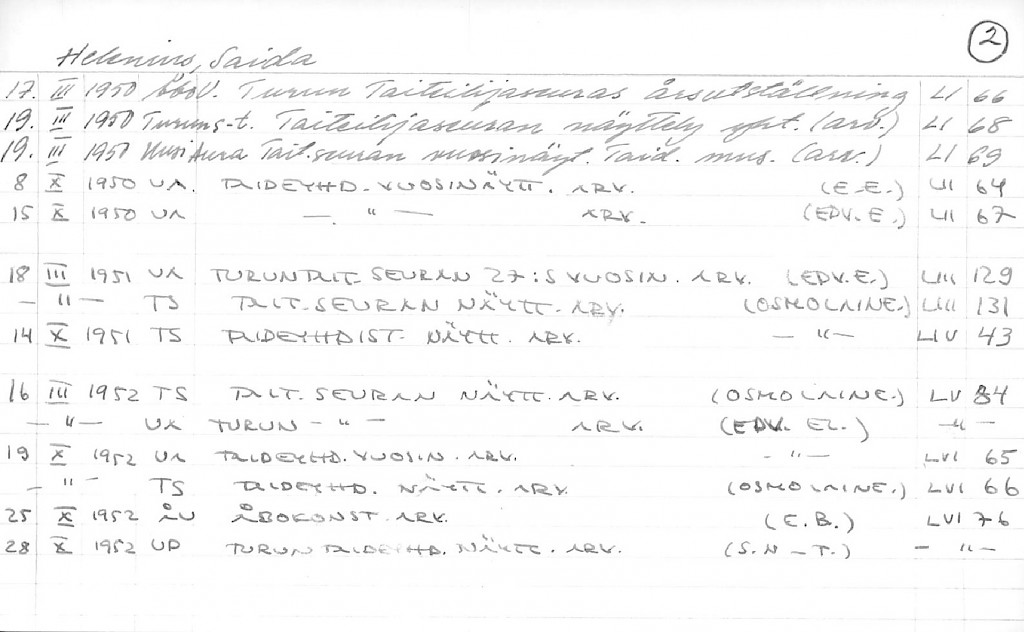 2
Helenius, Saida
17. III 1950 ÅboU. Turun Taiteilijaseuras årsutställning LI 66
19. III 1950 Turuns-t. Taiteilijaseuran näyttely (arv.) LI 68
19. III 1950 Uusi Aura Tait.seuran vuosinäyt. Taid. mus. (arv.) LI 69
8 X 1950 UA. TAIDEYHD. VUOSINÄYTT. ARV. (E.E.) LII 64
15 X 1950 UA — " — ARV. (EDV.E.) LII 67
18 III 1951 UA TURUN TAIT. SEURAN 27:S VUOSIN. ARV. (EDV.E.) LIII 129
— " — TS TAIT. SEURAN NÄYTT. ARV. (OSMO LAINE.) LIII 131
14 X 1951 TS TAIDEYHDIST. NÄYTT. ARV. — " — LIV 43
16 III 1952 TS TAIT. SEURAN NÄYTT. ARV. (OSMO LAINE.) LV 34
— " — UA TURUN — " — ARV. (EDV. EL.) — " —
19 X 1952 UA TAIDEYHD. VUOSIN. ARV. — " — LVI 65
— " — TS TAIDEYHD. NÄYTT. ARV. (OSMO LAINE.) LVI 66
25 X 1952 ÅU ÅBO KONST. ARV. (E.B.) LVI 76
28 X 1952 UP TURUN TAIDEYHD. NÄYTT. ARV. (S.N-T.) — " —